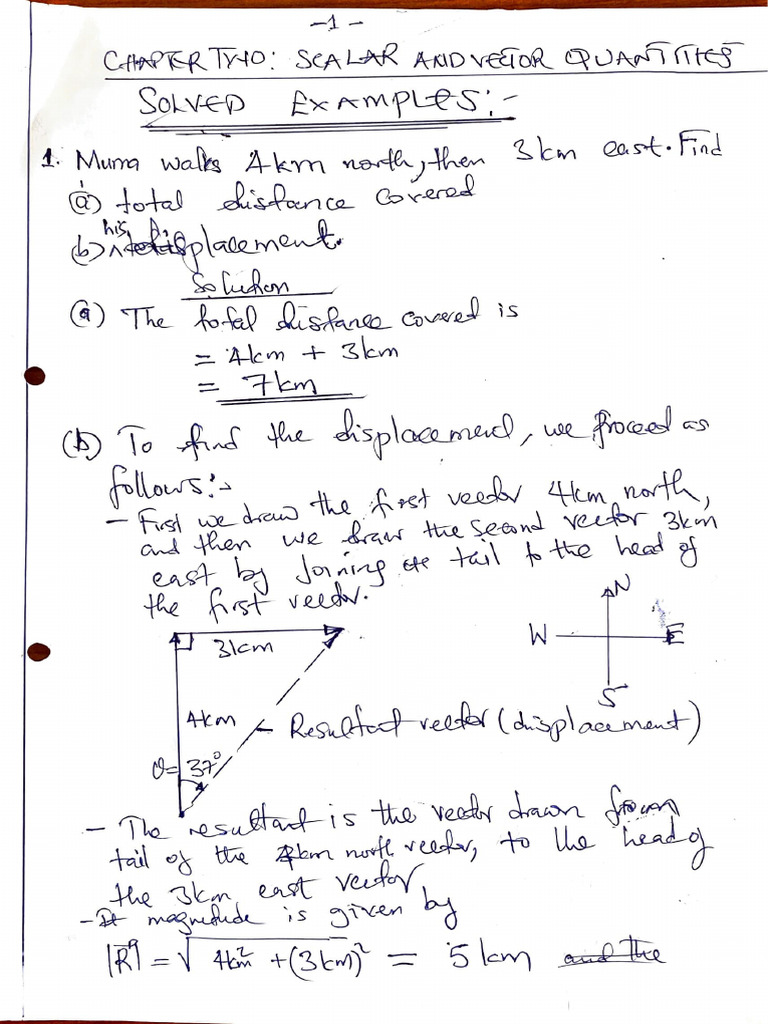 -1-
CHAPTER TWO: SCALAR AND VECTOR QUANTITIES
SOLVED EXAMPLES:-
1. Muna walks 4km north, then 3km east. Find
(a) total distance covered
(b) his displacement.
Solution
(a) The total distance covered is
= 4km + 3km
= 7km
(b) To find the displacement, we proceed as
follows:-
- First we draw the first vector 4km north,
and then we draw the second vector 3km
east by joining its tail to the head of
the first vector.
N
W E
S
3km
4km
- Resultant vector (displacement)
θ= 37°
- The resultant is the vector drawn from
tail of the 4km north vector, to the head of
the 3km east vector
- It magnitude is given by
|R| = √4km² + (3km)² = 5km and the